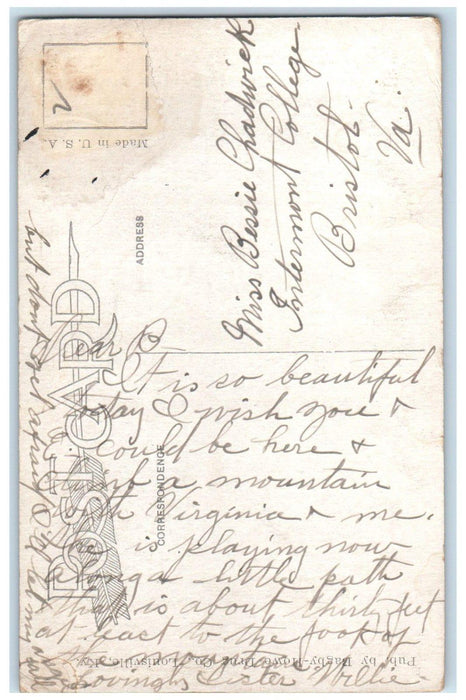 Made in U. S. A.
POST CARD
ADDRESS
CORRESPONDENCE
Miss Bessie Chadwick
Intermont College
Bristol
Va.
Dear B-
It is so beautiful
today I wish you &
I could be here &
climb a mountain
with Virginia & me.
She is playing now
along a little path
that is about thirty feet
at least to the foot of
the
Loving Sister Willie
but don't get
at my
Pub. by Bagby-Howe Drug Co., Louisville, Ky.